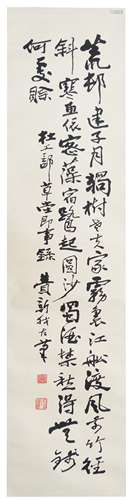 荒邨建子月獨樹老夫家霧裏江船渡風前竹徑
斜寒魚依密藻宿鷺起圓沙蜀酒禁愁得無錢
何處賒
杜工部草堂即事錄 費新我左筆